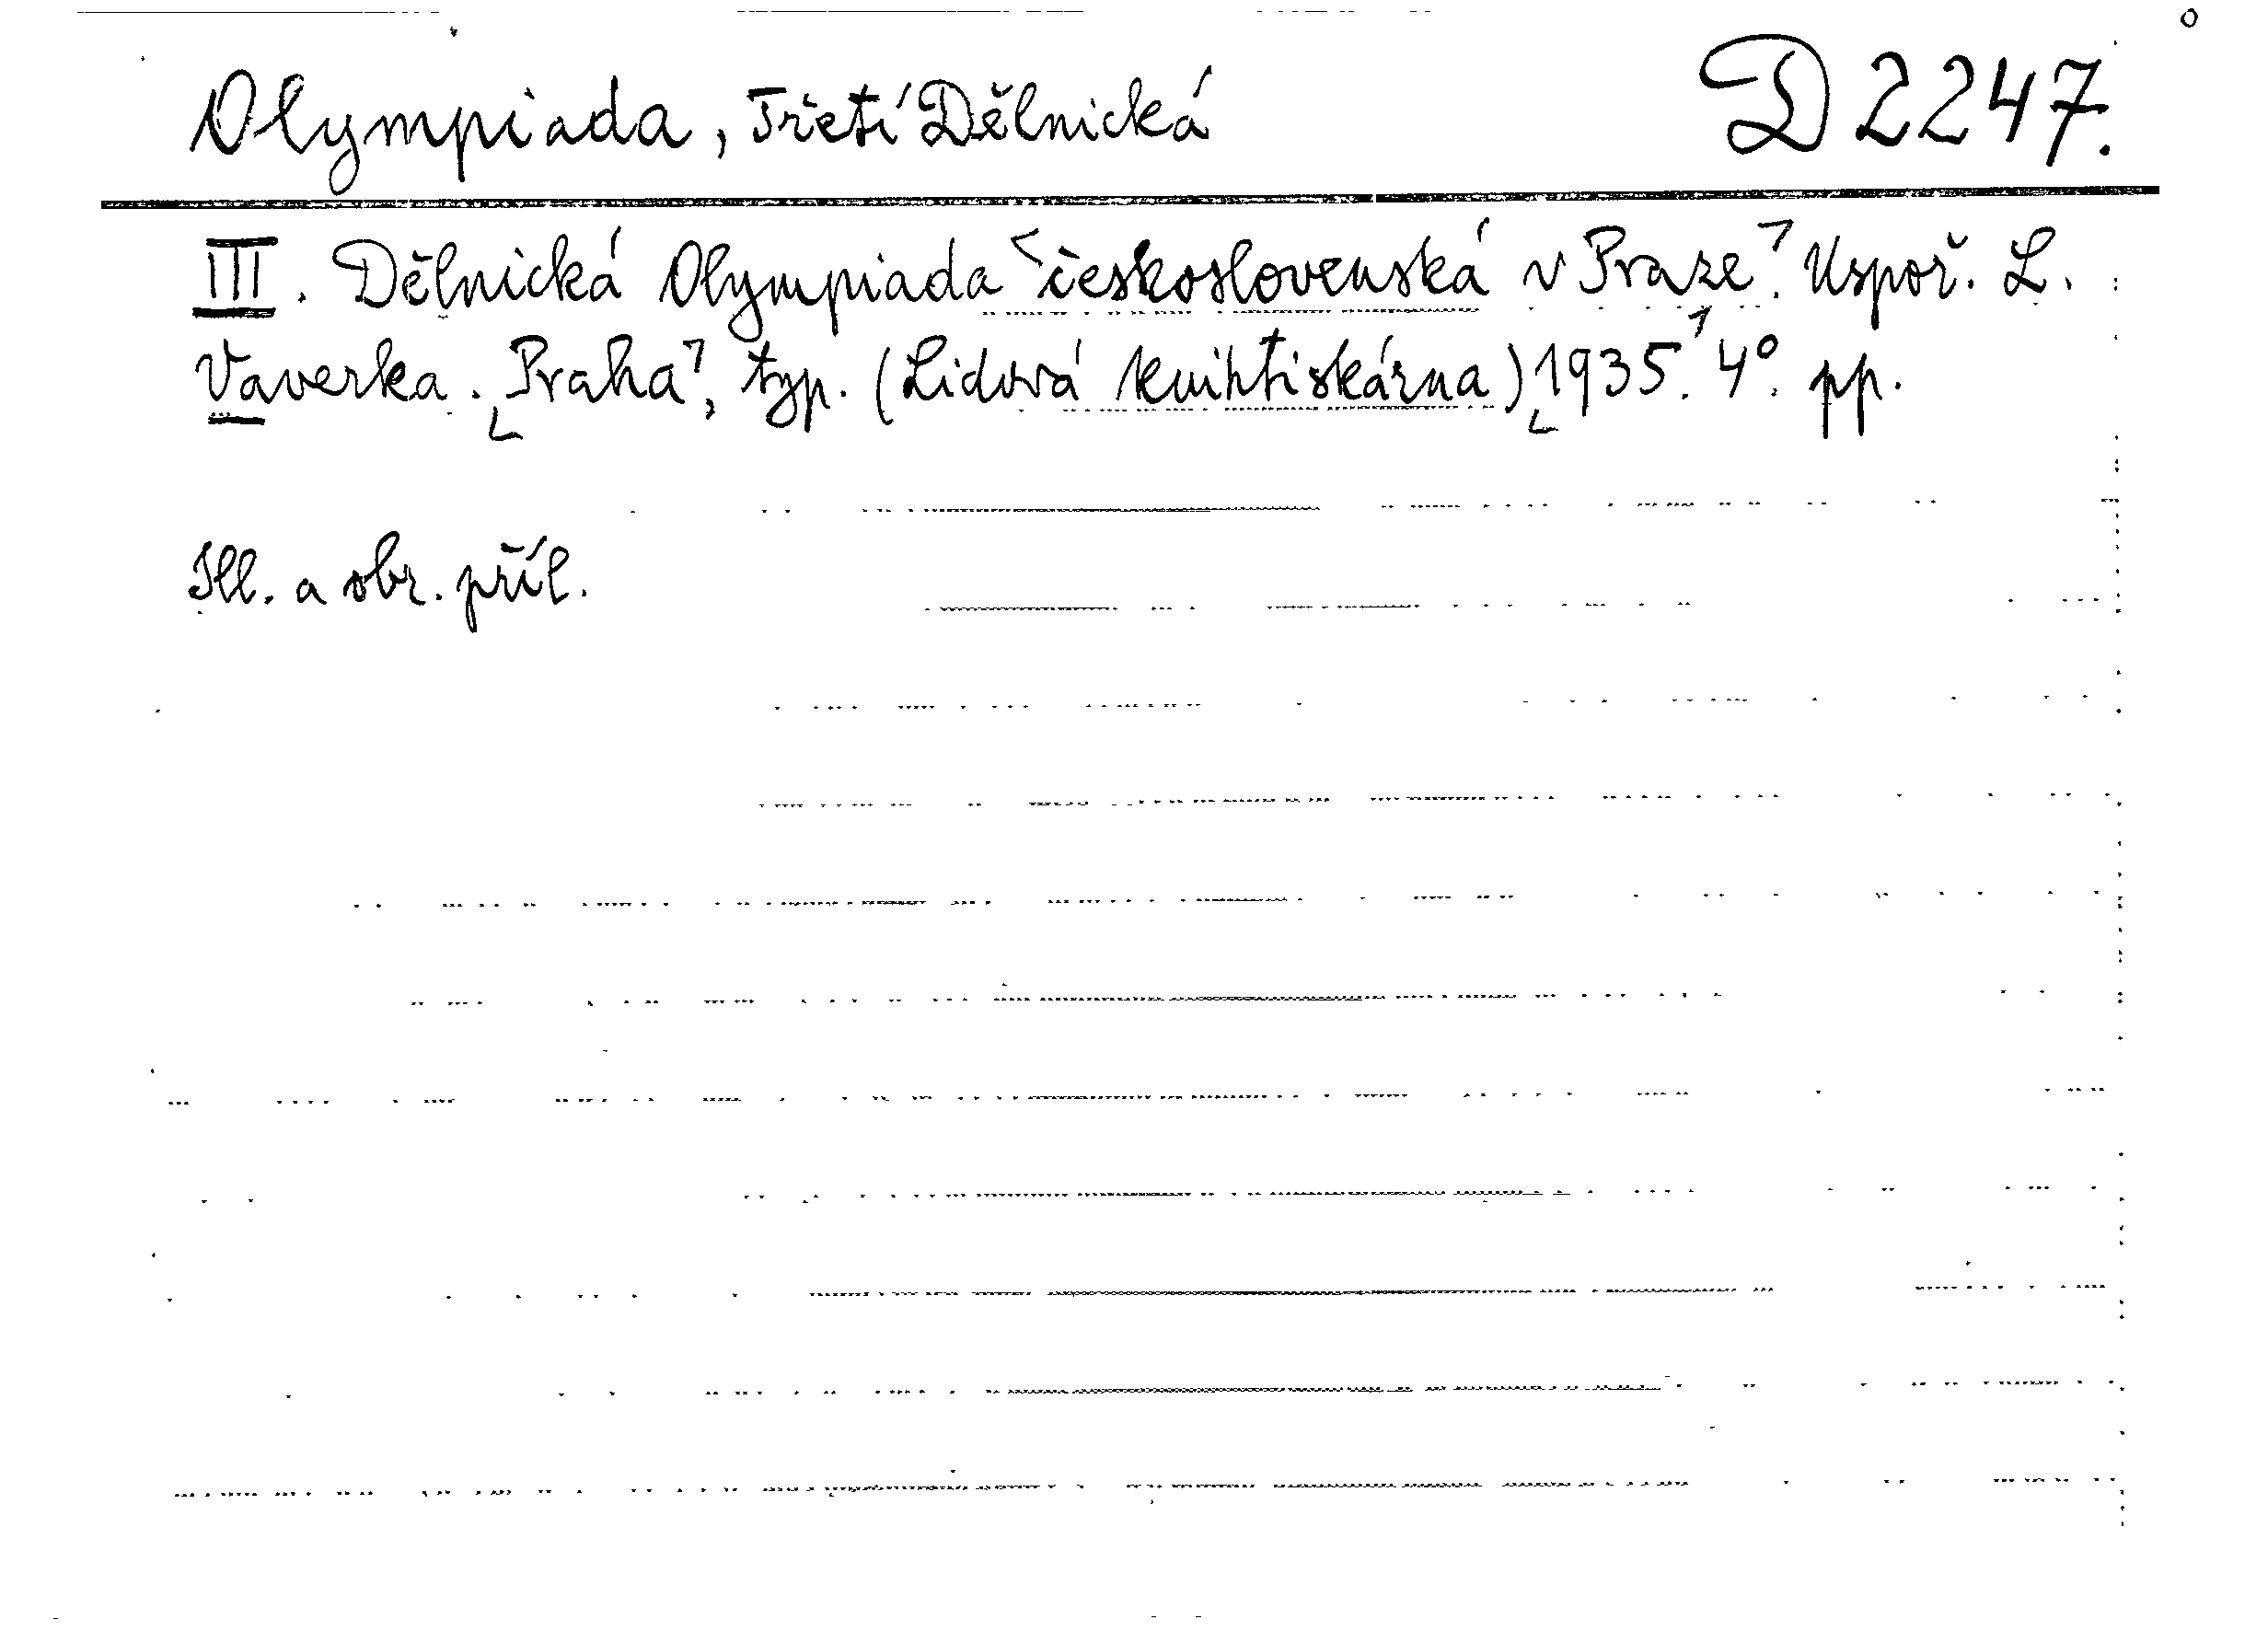 Olympiada, Třetí Dělnická D 2247.
III. Dělnická Olympiada československá v Praze⌝. Uspoř. L.
Vaverka. ⌞Praha⌝, typ. (Lidová knihtiskárna) ⌞1935⌝. 4°. pp.
Ill. a obr. příl.